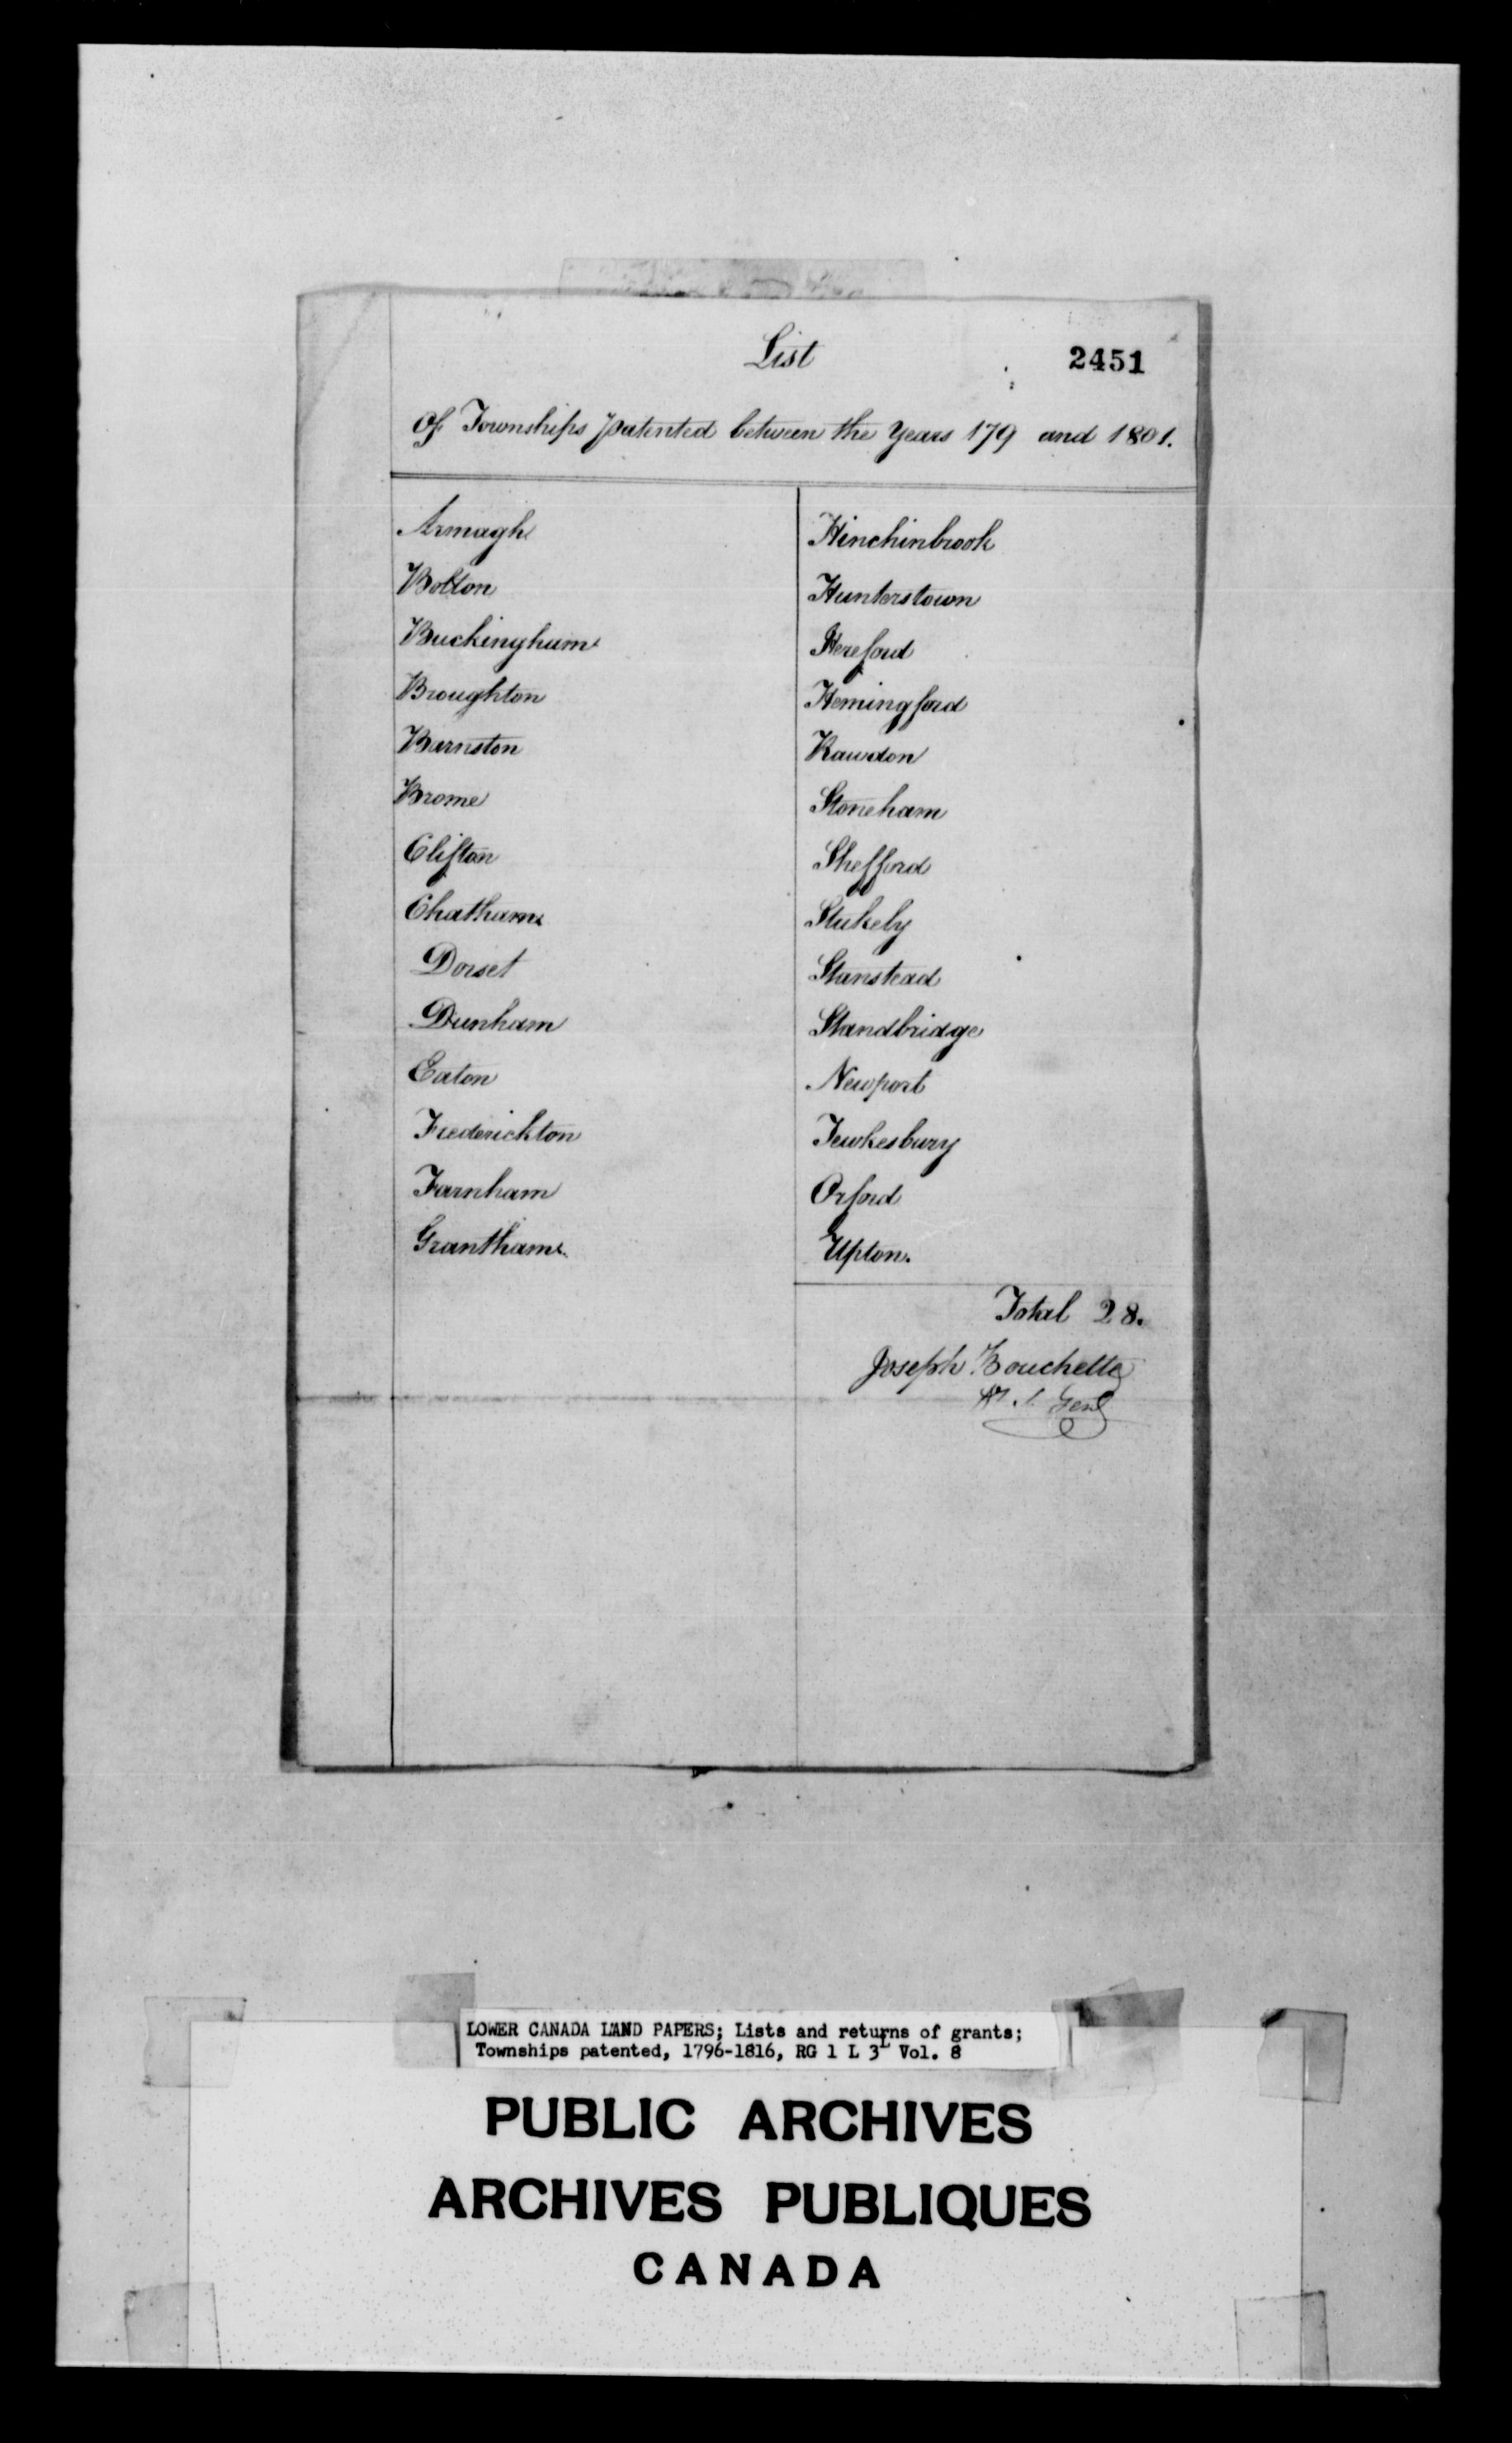 List
2451
Of Townships patented between the Years 179 and 1801.
Armagh
Bolton
Buckingham
Broughton
Barnston
Brome
Clifton
Chatham
Dorset
Dunham
Eaton
Frederickton
Farnham
Grantham
Hinchinbrook
Hunterstown
Hereford
Hemingford
Rawdon
Stoneham
Shefford
Stukely
Stanstead
Standbridge
Newport
Tewkesbury
Orford
Upton.
Total 28.
Joseph Bouchette
Genl
LOWER CANADA LAND PAPERS; Lists and returns of grants;
Townships patented, 1796-1816, RG 1 L 3L Vol. 8
PUBLIC ARCHIVES
ARCHIVES PUBLIQUES
CANADA